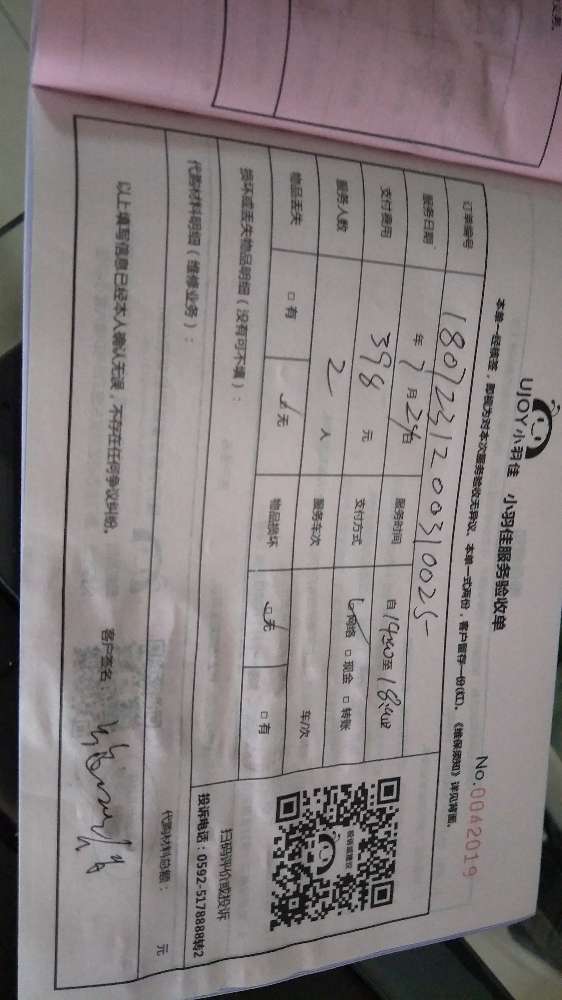 UJOY小羽佳 小羽佳服务验收单
No.0042019
本单一经填签，即视为对本次服务验收无异议。本单一式两份，客户留存一份(红)。《维保须知》详见背面。
订单编号 1807231200310025
服务日期 年 7 月 24日 服务时间 自 1430至 18:00
支付费用 398 元 支付方式 ☑网络 □现金 □转账
服务人数 2 人 服务车次 车/次
物品丢失 □有 ☑无 物品损坏 ☑无 □有
损坏或丢失物品明细（没有可不填）：
扫码评价或投诉
投诉电话：0592-5178888转2
代购材料明细（维修业务）：
代购材料总额： 元
以上填写信息已经本人确认无误，不存在任何争议纠纷。
客户签名：